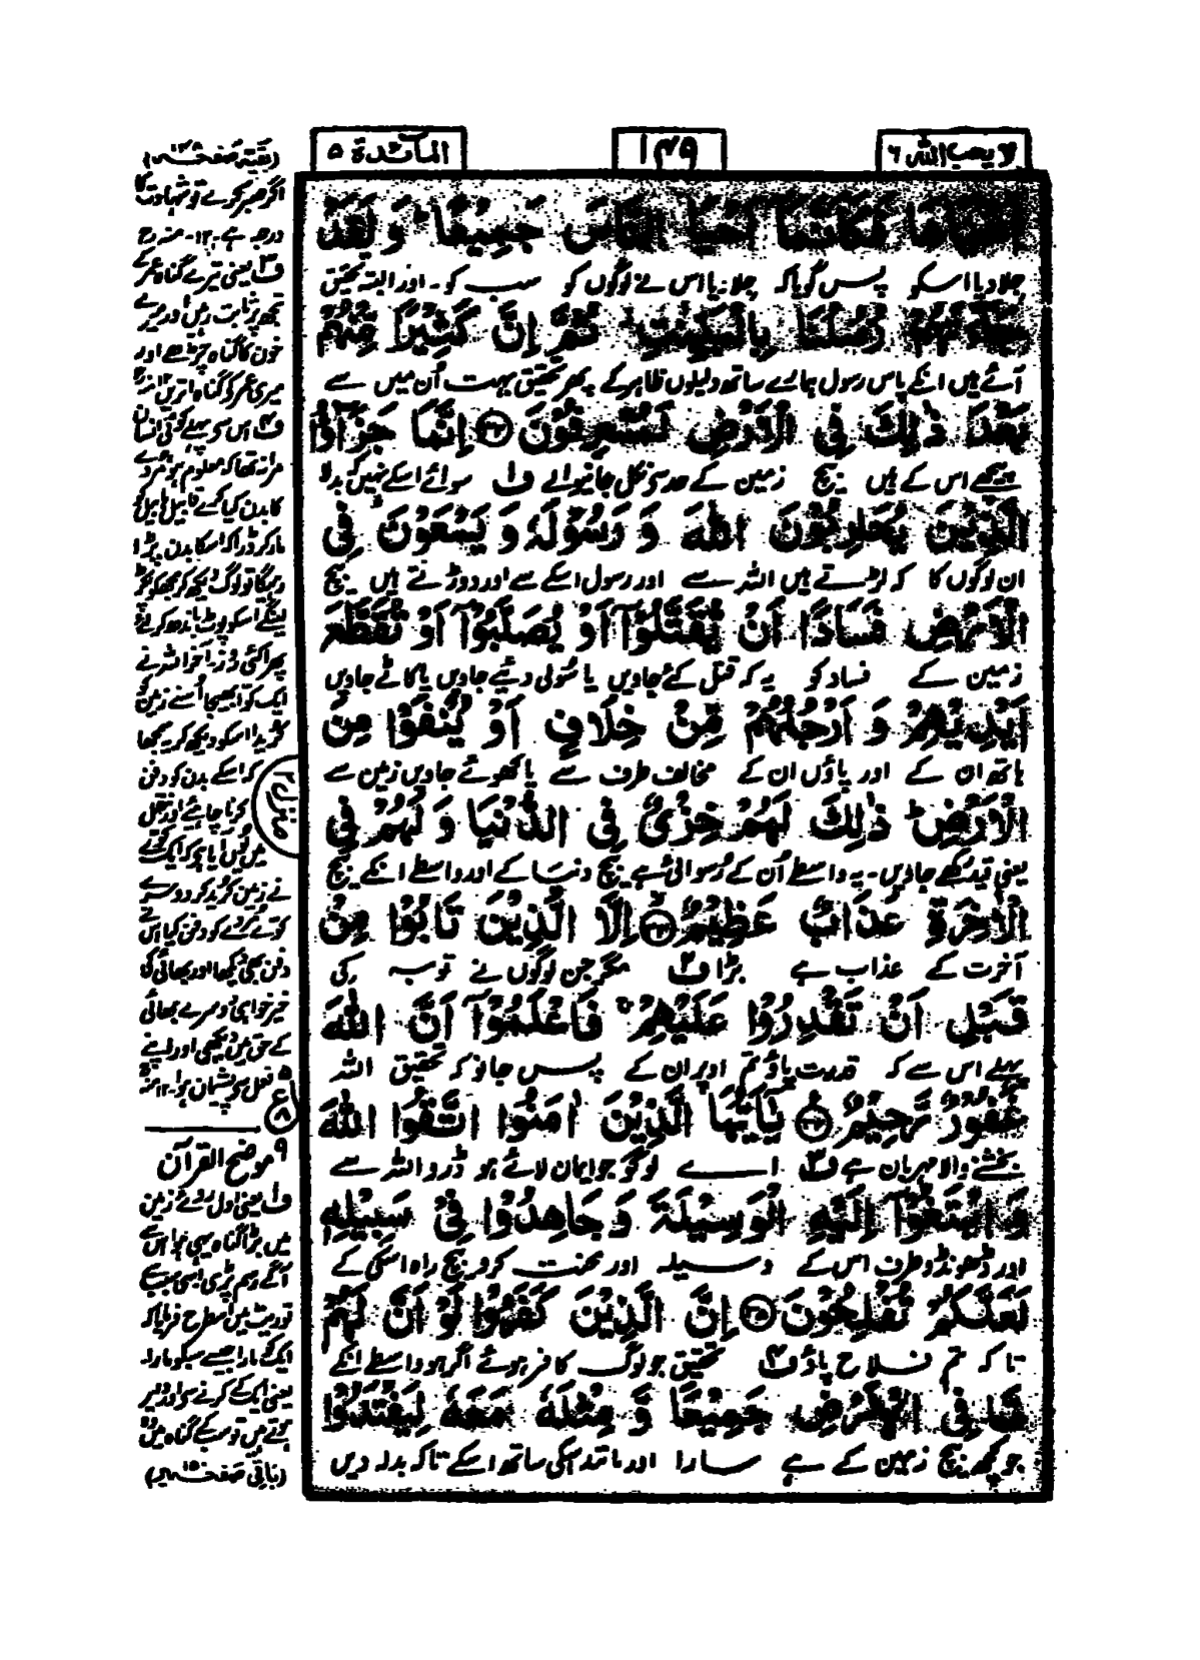 لا یحب اللہ ٦
١٤٩
المآئدة ٥
اَحْيَاهَا فَكَاَنَّمَآ اَحْيَا النَّاسَ جَمِيْعًا ؕ وَ لَقَدْ
جلا دیا اسکو پس گویا کہ جلا دیا اس نے لوگوں کو سب کو۔ اور البتہ تحقیق
جَآءَتْهُمْ رُسُلُنَا بِالْبَيِّنٰتِ ثُمَّ اِنَّ كَثِيْرًا مِّنْهُمْ
آئے ہیں انکے پاس رسول ہمارے ساتھ دلیلوں ظاہر کے پھر تحقیق بہت اُن میں سے
بَعْدَ ذٰلِكَ فِي الْاَرْضِ لَمُسْرِفُوْنَ ﴿٣٢﴾ اِنَّمَا جَزٰٓؤُا
پیچھے اس کے ہیں بیچ زمین کے حد سے نکل جانیوالے ف۱ سوائے اسکے نہیں کہ بدلا
الَّذِيْنَ يُحَارِبُوْنَ اللّٰهَ وَ رَسُوْلَهٗ وَ يَسْعَوْنَ فِي
ان لوگوں کا کہ لڑتے ہیں اللہ سے اور رسول اسکے سے اور دوڑتے ہیں بیچ
الْاَرْضِ فَسَادًا اَنْ يُّقَتَّلُوْٓا اَوْ يُصَلَّبُوْٓا اَوْ تُقَطَّعَ
زمین کے فساد کو یہ کہ قتل کئے جاویں یا سُولی دئیے جاویں یا کاٹے جاویں
اَيْدِيْهِمْ وَ اَرْجُلُهُمْ مِّنْ خِلَافٍ اَوْ يُنْفَوْا مِنَ
ہاتھ ان کے اور پاؤں ان کے مخالف طرف سے یا کھوئے جاویں زمین سے
الْاَرْضِ ؕ ذٰلِكَ لَهُمْ خِزْيٌ فِي الدُّنْيَا وَ لَهُمْ فِي
یعنی قید رکھے جاویں۔ یہ واسطے اُن کے رُسوائی ہے بیچ دنیا کے اور واسطے انکے بیچ
الْاٰخِرَةِ عَذَابٌ عَظِيْمٌ ﴿٣٣﴾ اِلَّا الَّذِيْنَ تَابُوْا مِنْ
آخرت کے عذاب ہے بڑا ف۲ مگر جن لوگوں نے توبہ کی
قَبْلِ اَنْ تَقْدِرُوْا عَلَيْهِمْ ۚ فَاعْلَمُوْٓا اَنَّ اللّٰهَ
پہلے اس سے کہ قدرت پاؤ تم اوپر ان کے پس جانو کہ تحقیق اللہ
غَفُوْرٌ رَّحِيْمٌ ﴿٣٤﴾ يٰٓاَيُّهَا الَّذِيْنَ اٰمَنُوا اتَّقُوا اللّٰهَ
بخشنے والا مہربان ہے ف۳ اے لوگو جو ایمان لائے ہو ڈرو اللہ سے
وَ ابْتَغُوْٓا اِلَيْهِ الْوَسِيْلَةَ وَ جَاهِدُوْا فِيْ سَبِيْلِهٖ
اور ڈھونڈو طرف اس کے وسیلہ اور محنت کرو بیچ راہ اسکی کے
لَعَلَّكُمْ تُفْلِحُوْنَ ﴿٣٥﴾ اِنَّ الَّذِيْنَ كَفَرُوْا لَوْ اَنَّ لَهُمْ
تاکہ تم فلاح پاؤ ف۴ تحقیق جو لوگ کافر ہوئے اگر ہو واسطے انکے
مَّا فِي الْاَرْضِ جَمِيْعًا وَّ مِثْلَهٗ مَعَهٗ لِيَفْتَدُوْا
جو کچھ بیچ زمین کے ہے سارا اور مانند اسکی ساتھ اسکے تاکہ بدلہ دیں
(بقیہ صفحہ ١٤٨)
اگر صبر کرے تو شہادت کا
درجہ ہے۔ ١٢ منہ رح
ف۳ یعنی تیرے گناہ عمر کے
تجھ پر ثابت رہیں اور میرے
خون کا گناہ چڑھے اور
میری عمر کے گناہ اتریں
ف۴ اس سے پہلے کوئی انسان
مرا نہ تھا کہ معلوم ہو مردے
کا بدن کیا کیجئے قابیل ہابیل کو
مار کر ڈرا کہ اسکا بدن پڑا
رہیگا تو لوگ دیکھ کر مجھ کو پکڑ
لینگے اسکو پوٹ باندھ کر لئے
پھرا کئی روز آخر اللہ نے
ایک کوّا بھیجا اُسنے زمین کو
کریدا اسکو دیکھ کر یہ سمجھا
کہ اسکے بدن کو دفن
کرنا چاہئے اور نقل
میں یوں آیا ہے کہ ایک کوّے
نے زمین کرید کر دوسرے
کوّے مُرے کو دفن کیا اس نے
دفن بھی دیکھا اور بھائی کی
خیر خواہی دوسرے بھائی
کے حق میں دیکھی اور اپنے
فعل سے پشیمان ہوا۔ ١٢ منہ
موضح القرآن
ف۱ یعنی اول روئے زمین
میں بڑا گناہ یہی ہوا اس سے
آگے رسم پڑی اسی سبب سے
توریٰت میں اسطرح فرمایا کہ
ایک کے مارا جیسے سبکو مارا
یعنی ایک کے کرنے سے اور دلیر
ہوتے ہیں تو سب کے گناہ میں
(باقی صفحہ ١٥٠)